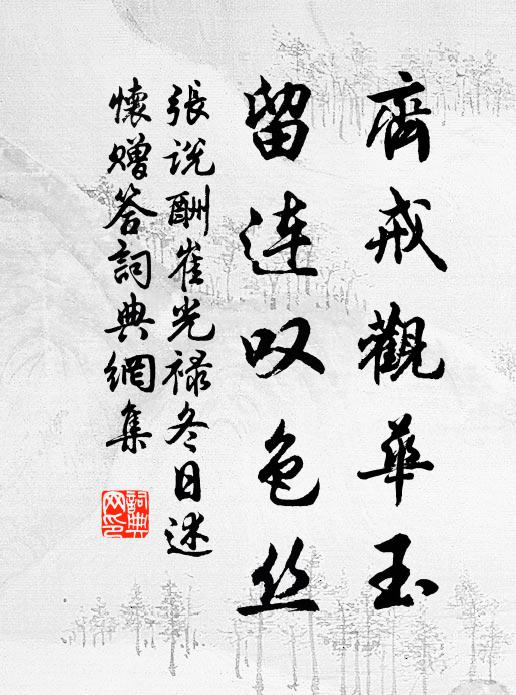 齊戒觀華玉
留连叹色丝
張説酬崔光祿冬日述
懷贈答詞典網集
詞典
网印